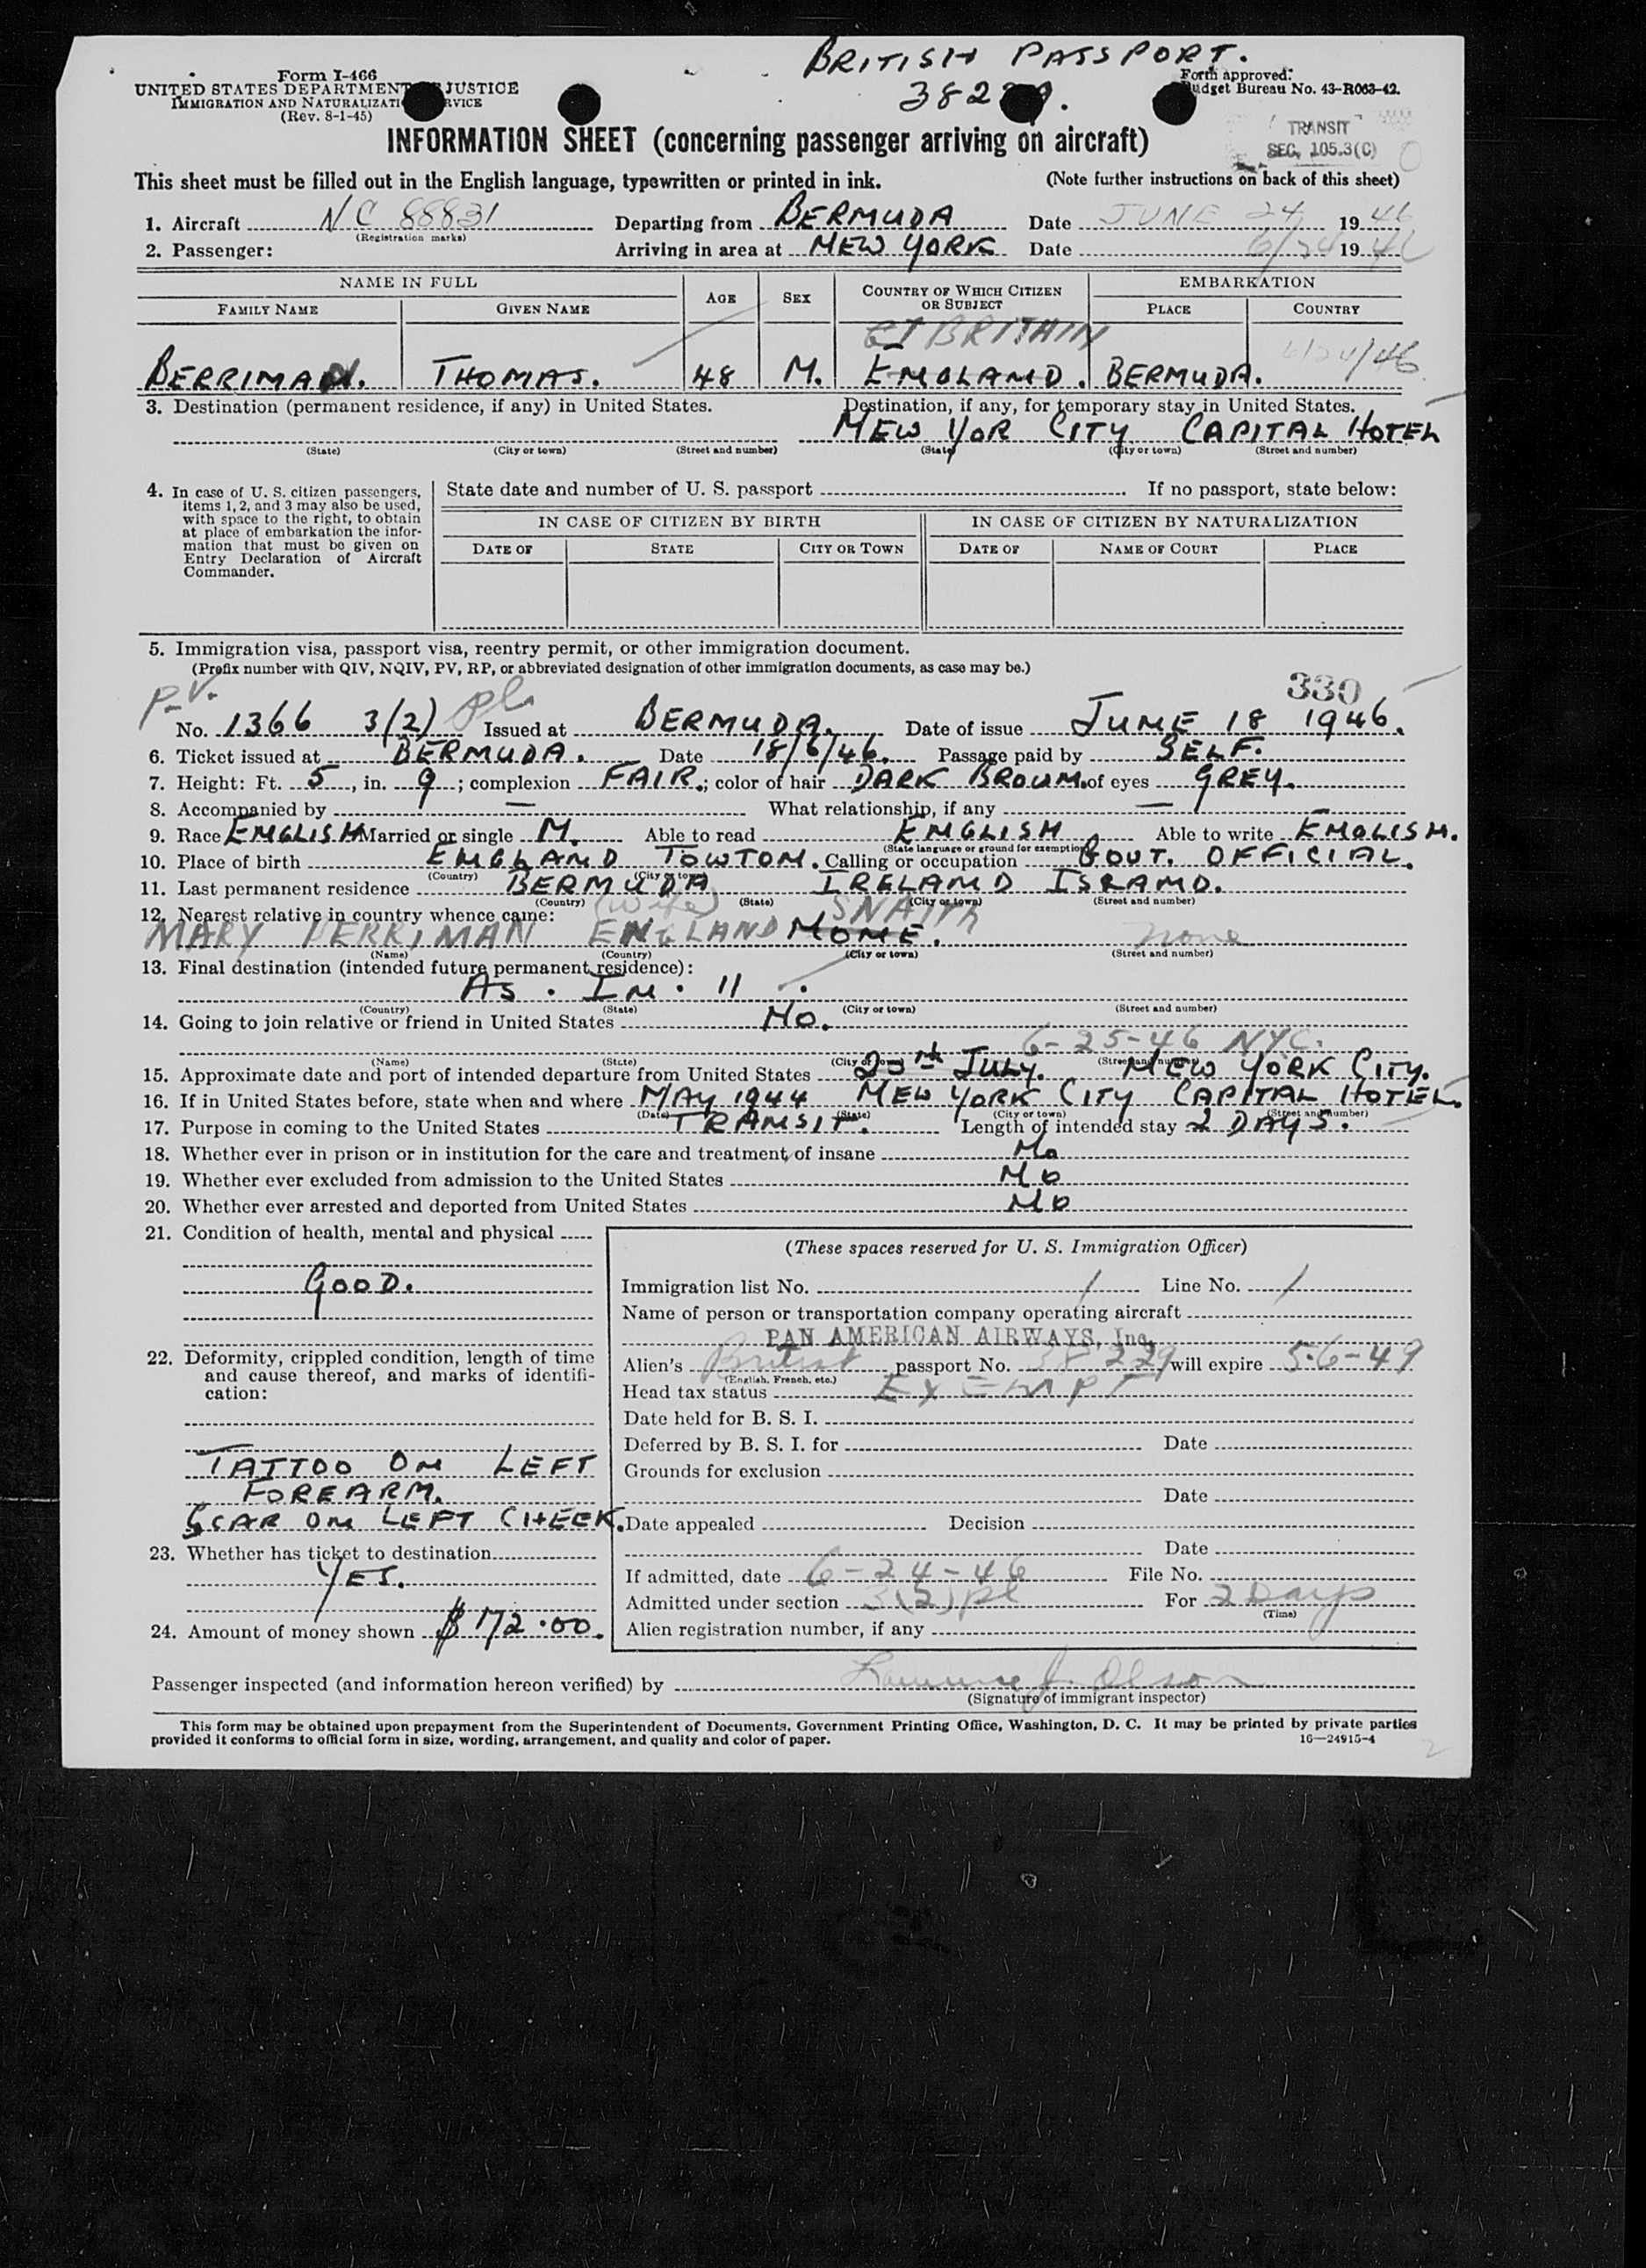 BRITISH PASSPORT.
Form I-466
UNITED STATES DEPARTMENT JUSTICE
IMMIGRATION AND NATURALIZATI RVICE
(Rev. 8-1-45)
382 9.
Form approved.
udget Bureau No. 43-R063-42.
INFORMATION SHEET (concerning passenger arriving on aircraft)
TRANSIT
SEC. 105.3(C)
This sheet must be filled out in the English language, typewritten or printed in ink. (Note further instructions on back of this sheet)
1. Aircraft NC 88831 Departing from BERMUDA Date JUNE 24 1946
(Registration marks)
2. Passenger: Arriving in area at NEW YORK Date 6/24 1946
NAME IN FULL AGE SEX COUNTRY OF WHICH CITIZEN OR SUBJECT EMBARKATION
FAMILY NAME GIVEN NAME PLACE COUNTRY
GT BRITAIN
6/24/46
BERRIMAN. THOMAS. 48 M. ENGLAND. BERMUDA.
3. Destination (permanent residence, if any) in United States. Destination, if any, for temporary stay in United States.
NEW YOR CITY CAPITAL HOTEL
(State) (City or town) (Street and number) (State) (City or town) (Street and number)
4. In case of U. S. citizen passengers, items 1, 2, and 3 may also be used, with space to the right, to obtain at place of embarkation the information that must be given on Entry Declaration of Aircraft Commander.
State date and number of U. S. passport If no passport, state below:
IN CASE OF CITIZEN BY BIRTH IN CASE OF CITIZEN BY NATURALIZATION
DATE OF STATE CITY OR TOWN DATE OF NAME OF COURT PLACE
5. Immigration visa, passport visa, reentry permit, or other immigration document.
(Prefix number with QIV, NQIV, PV, RP, or abbreviated designation of other immigration documents, as case may be.)
330
P.V.
No. 1366 3(2) pl Issued at BERMUDA. Date of issue JUNE 18 1946.
6. Ticket issued at BERMUDA. Date 18/6/46. Passage paid by SELF.
7. Height: Ft. 5, in. 9; complexion FAIR.; color of hair DARK BROWN. of eyes GREY.
8. Accompanied by — What relationship, if any —
9. Race ENGLISH Married or single M. Able to read ENGLISH Able to write ENGLISH.
(State language or ground for exemption)
10. Place of birth ENGLAND TOWTON. Calling or occupation GOVT. OFFICIAL.
(Country) (City or town)
11. Last permanent residence BERMUDA IRELAND ISLAND.
(Country) (State) (City or town) (Street and number)
12. Nearest relative in country whence came: (wife) SNAITH
MARY BERRIMAN ENGLAND NONE. none
(Name) (Country) (City or town) (Street and number)
13. Final destination (intended future permanent residence):
AS . IN . 11 .
(Country) (State) (City or town) (Street and number)
14. Going to join relative or friend in United States NO.
6-25-46 NYC.
(Name) (State) (City or town) (Street and number)
15. Approximate date and port of intended departure from United States 25th JULY. NEW YORK CITY.
16. If in United States before, state when and where MAY 1944 NEW YORK CITY CAPITAL HOTEL.
(Date) (State) (City or town) (Street and number)
17. Purpose in coming to the United States TRANSIT. Length of intended stay 2 DAYS.
18. Whether ever in prison or in institution for the care and treatment of insane No
19. Whether ever excluded from admission to the United States NO
20. Whether ever arrested and deported from United States NO
21. Condition of health, mental and physical
GOOD.
22. Deformity, crippled condition, length of time and cause thereof, and marks of identification:
TATTOO ON LEFT
FOREARM.
SCAR ON LEFT CHEEK.
23. Whether has ticket to destination
YES.
24. Amount of money shown $172.00.
(These spaces reserved for U. S. Immigration Officer)
Immigration list No. 1 Line No. 1
Name of person or transportation company operating aircraft
PAN AMERICAN AIRWAYS, Inc.
Alien's British passport No. 38229 will expire 5-6-49
(English, French, etc.)
Head tax status EXEMPT
Date held for B. S. I.
Deferred by B. S. I. for Date
Grounds for exclusion
Date
Date appealed Decision
Date
If admitted, date 6-24-46 File No.
Admitted under section 3(2) pl For 2 Days
(Time)
Alien registration number, if any
Passenger inspected (and information hereon verified) by J. Olson
(Signature of immigrant inspector)
This form may be obtained upon prepayment from the Superintendent of Documents, Government Printing Office, Washington, D. C. It may be printed by private parties
provided it conforms to official form in size, wording, arrangement, and quality and color of paper. 16—24915-4
2